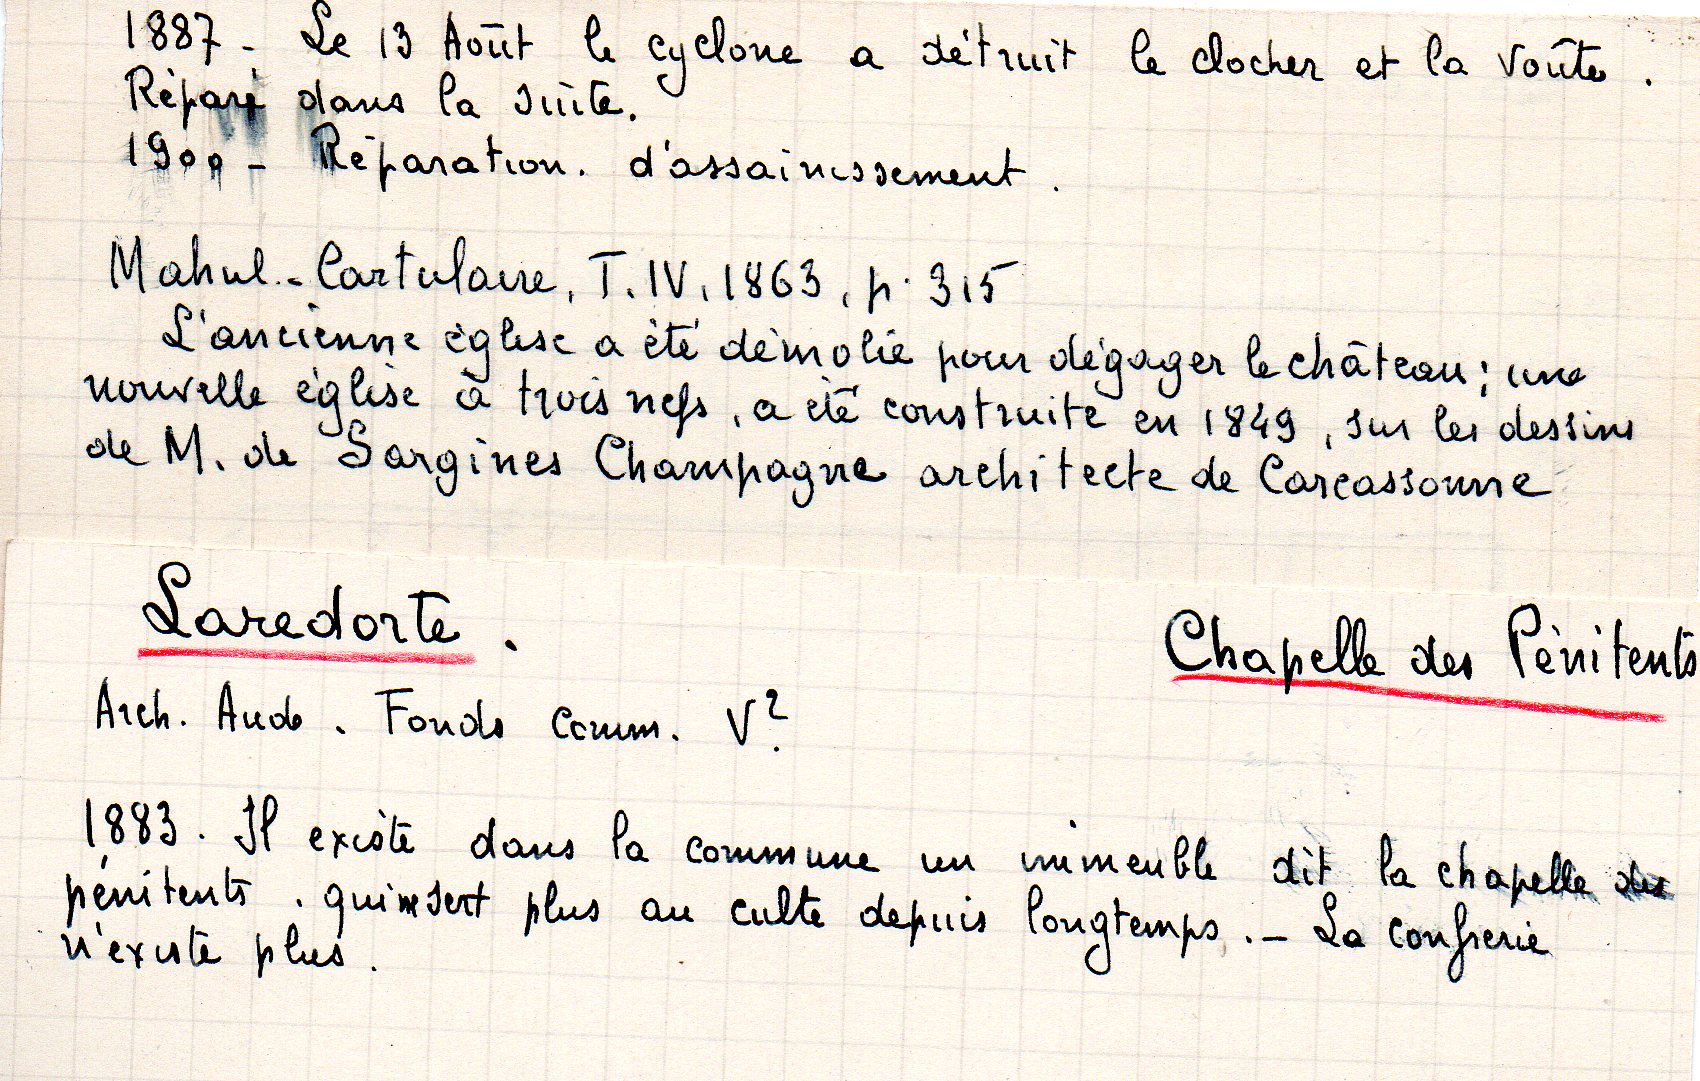 1887 - Le 13 Août le cyclone a détruit le clocher et la voûte.
Réparé dans la suite.
1900 - Réparation. d'assainissement.
Mahul.- Cartulaire, T. IV, 1863, p. 315
L'ancienne église a été démolie pour dégager le château; une
nouvelle église à trois nefs, a été construite en 1849, sur les dessins
de M. de Sargines Champagne architecte de Carcassonne
Laredorte. Chapelle des Pénitents
Arch. Aude. Fonds Comm. V?
1883. Il existe dans la commune un immeuble dit la chapelle des
pénitents. qui ne sert plus au culte depuis longtemps. - La confrerie
n'existe plus.